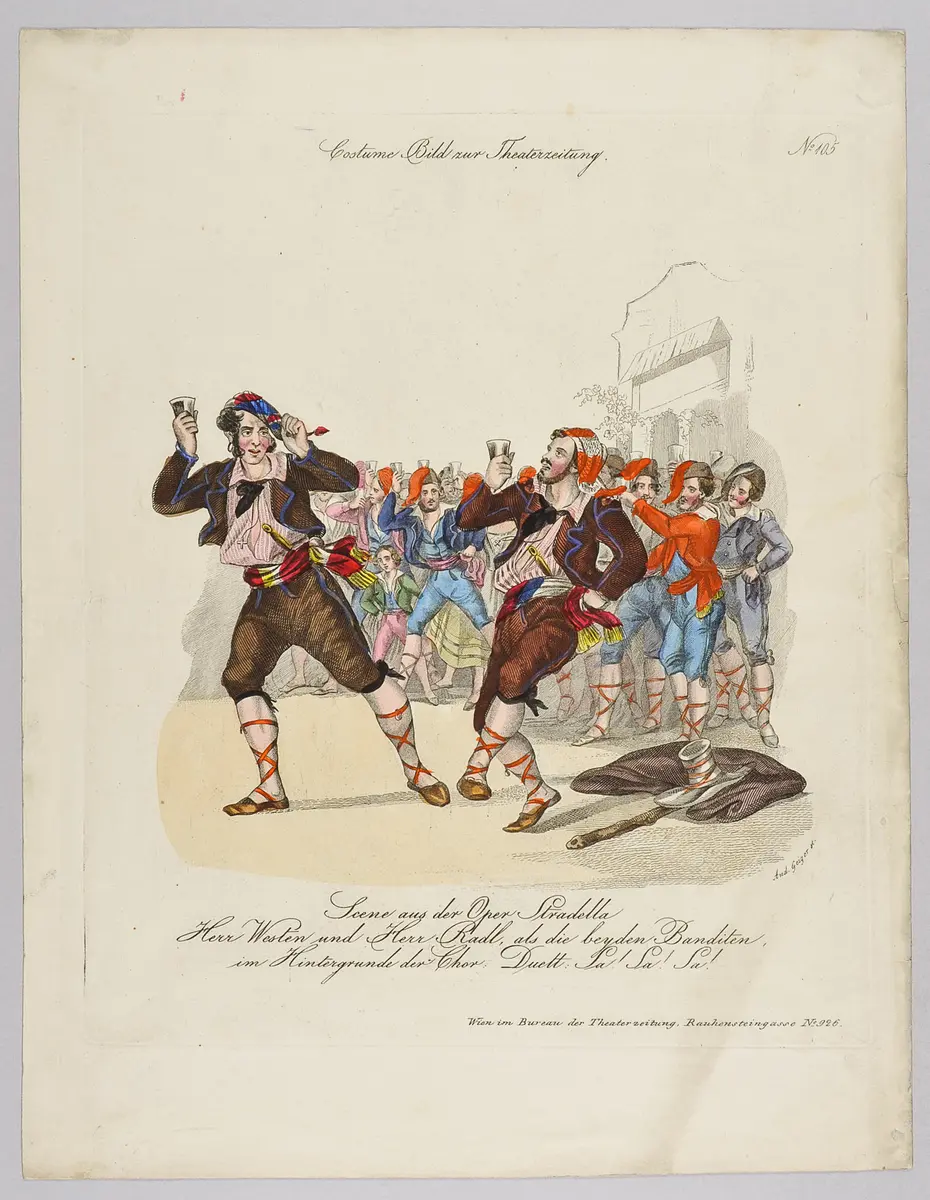 Costume Bild zur Theaterzeitung.
No 105
And. Geiger f:
Scene aus der Oper Stradella
Herr Westen und Herr Radl, als die beyden Banditen,
im Hintergrunde der Chor. Duett: La! La! La!
Wien im Bureau der Theaterzeitung, Rauhensteingasse No 926.